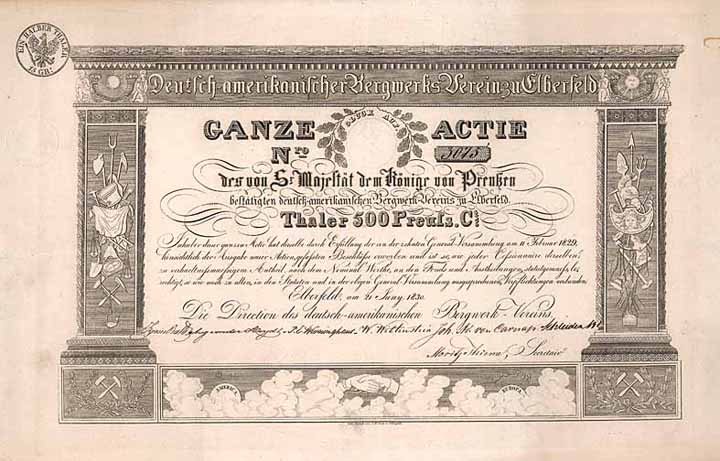 EIN HALBER THALER
15 GR:
Deutsch-amerikanischer Bergwerks Verein zu Elberfeld
GLÜCK AUF
GANZE ACTIE
Nro 3075
des von Sr Majestät dem Könige von Preußen
bestätigten deutsch-amerikanischen Bergwerk-Vereins zu Elberfeld.
Thaler 500 Preuſs. Ct
Inhaber dieser ganzen Actie hat dieselbe durch Erfüllung der in der zehnten General-Versammlung am 11 Februar 1829,
hinsichtlich der Ausgabe neuer Actien gefaßten Beschlüsse erworben und ist so, wie jeder Cessionaire derselben,
zu verhältnissmässigem Antheil, nach dem Nominal Werthe, an den Fonds und Austheilungen, statutgemäß, be
rechtigt, so wie auch zu allen, in den Statuten und in der obigen General Versammlung ausgesprochenen, Verpflichtungen verbunden.
Elberfeld, am 21 Juny 1830.
Die Direction des deutsch-amerikanischen Bergwerk-Vereins.
W. Wittenstein Joh. von Carnap
Moritz
AMERICA
EUROPA